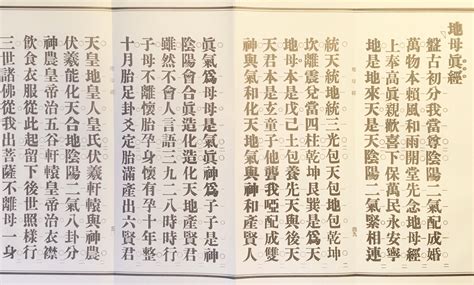 地母眞經
盤古初分我當尊陰陽二氣配成婚
萬物本賴風和雨開堂先念地母經
上奉高眞親歡喜下保萬民永安寧
地是地來天是天陰陽二氣緊相連
統天統地統三光包天包地包
坎離震兌當四柱乾坤艮巽是為天
地母本是戊己土包養先天與後天
天君本是玄童子他聾我啞配成雙
神與氣和化天地氣與神和產賢人
眞氣為母母是氣眞神為子子是神
陰陽會合眞造化造化天地產賢君
雖然不會人言語三九二八時時行
子母不離懷胎孕身懷有孕十年整
十月胎足卦爻定胎滿產出六賢君
天皇地皇人皇氏伏羲軒轅與神農
伏羲能化天合地陰陽二氣八卦分
神農皇帝治五谷軒轅皇帝治衣襟
飲食衣服從此起留下後世照樣行
三世諸佛從我出菩薩不離母一身